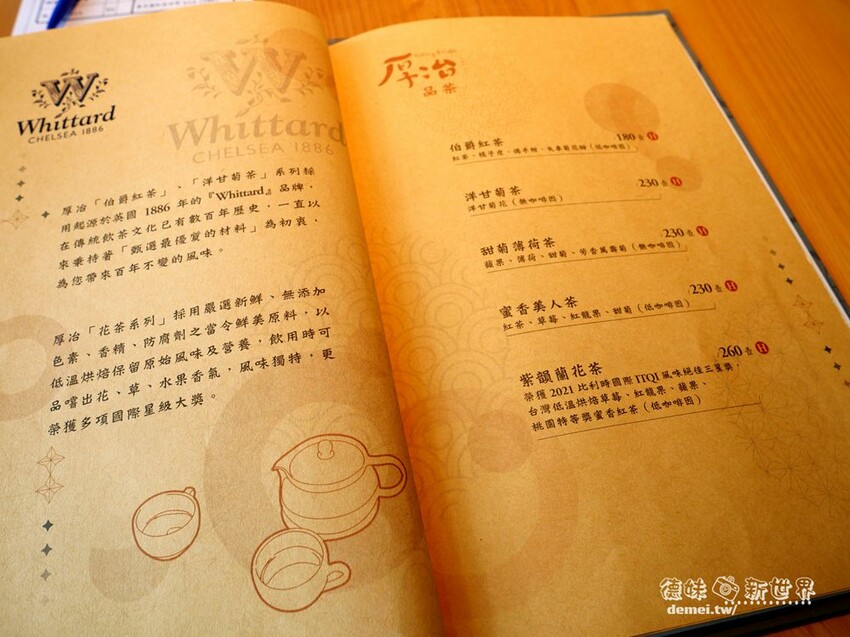 Whittard
CHELSEA 1886
Whittard
CHELSEA 1886
厚冶「伯爵紅茶」、「洋甘菊茶」系列採
用起源於英國 1886 年的『Whittard』品牌，
在傳統飲茶文化已有數百年歷史，一直以
來秉持著「甄選最優質的材料」為初衷，
為您帶來百年不變的風味。
厚冶「花茶系列」採用嚴選新鮮、無添加
色素、香精、防腐劑之當令鮮美原料，以
低溫烘焙保留原始風味及營養，飲用時可
品嚐出花、草、水果香氣，風味獨特，更
榮獲多項國際星級大獎。
厚冶
品茶
伯爵紅茶 180 壺 H
紅茶、橘子皮、佛手柑、矢車菊花瓣（低咖啡因）
洋甘菊茶 230 壺 H
洋甘菊花（無咖啡因）
甜菊薄荷茶 230 壺 H
蘋果、薄荷、甜菊、芳香萬壽菊（無咖啡因）
蜜香美人茶 230 壺 H
紅茶、草莓、紅龍果、甜菊（低咖啡因）
紫韻蘭花茶 260 壺 H
榮獲 2021 比利時國際 ITQI 風味絕佳三星獎，
台灣低溫烘焙草莓、紅龍果、蘋果、
桃園特等獎蜜香紅茶（低咖啡因）
德味 新世界
demei.tw/